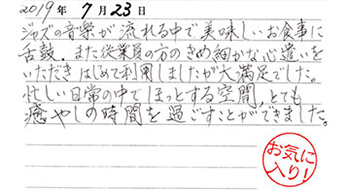 2019年 7月23日
ジャズの音楽が流れる中で美味しいお食事に
舌鼓.また従業員の方のきめ細かな心遣いを
いただきはじめて利用しましたが大満足でした。
忙しい日常の中でほっとする空間、とても
癒やしの時間を過ごすことができました。
お気に
入り!